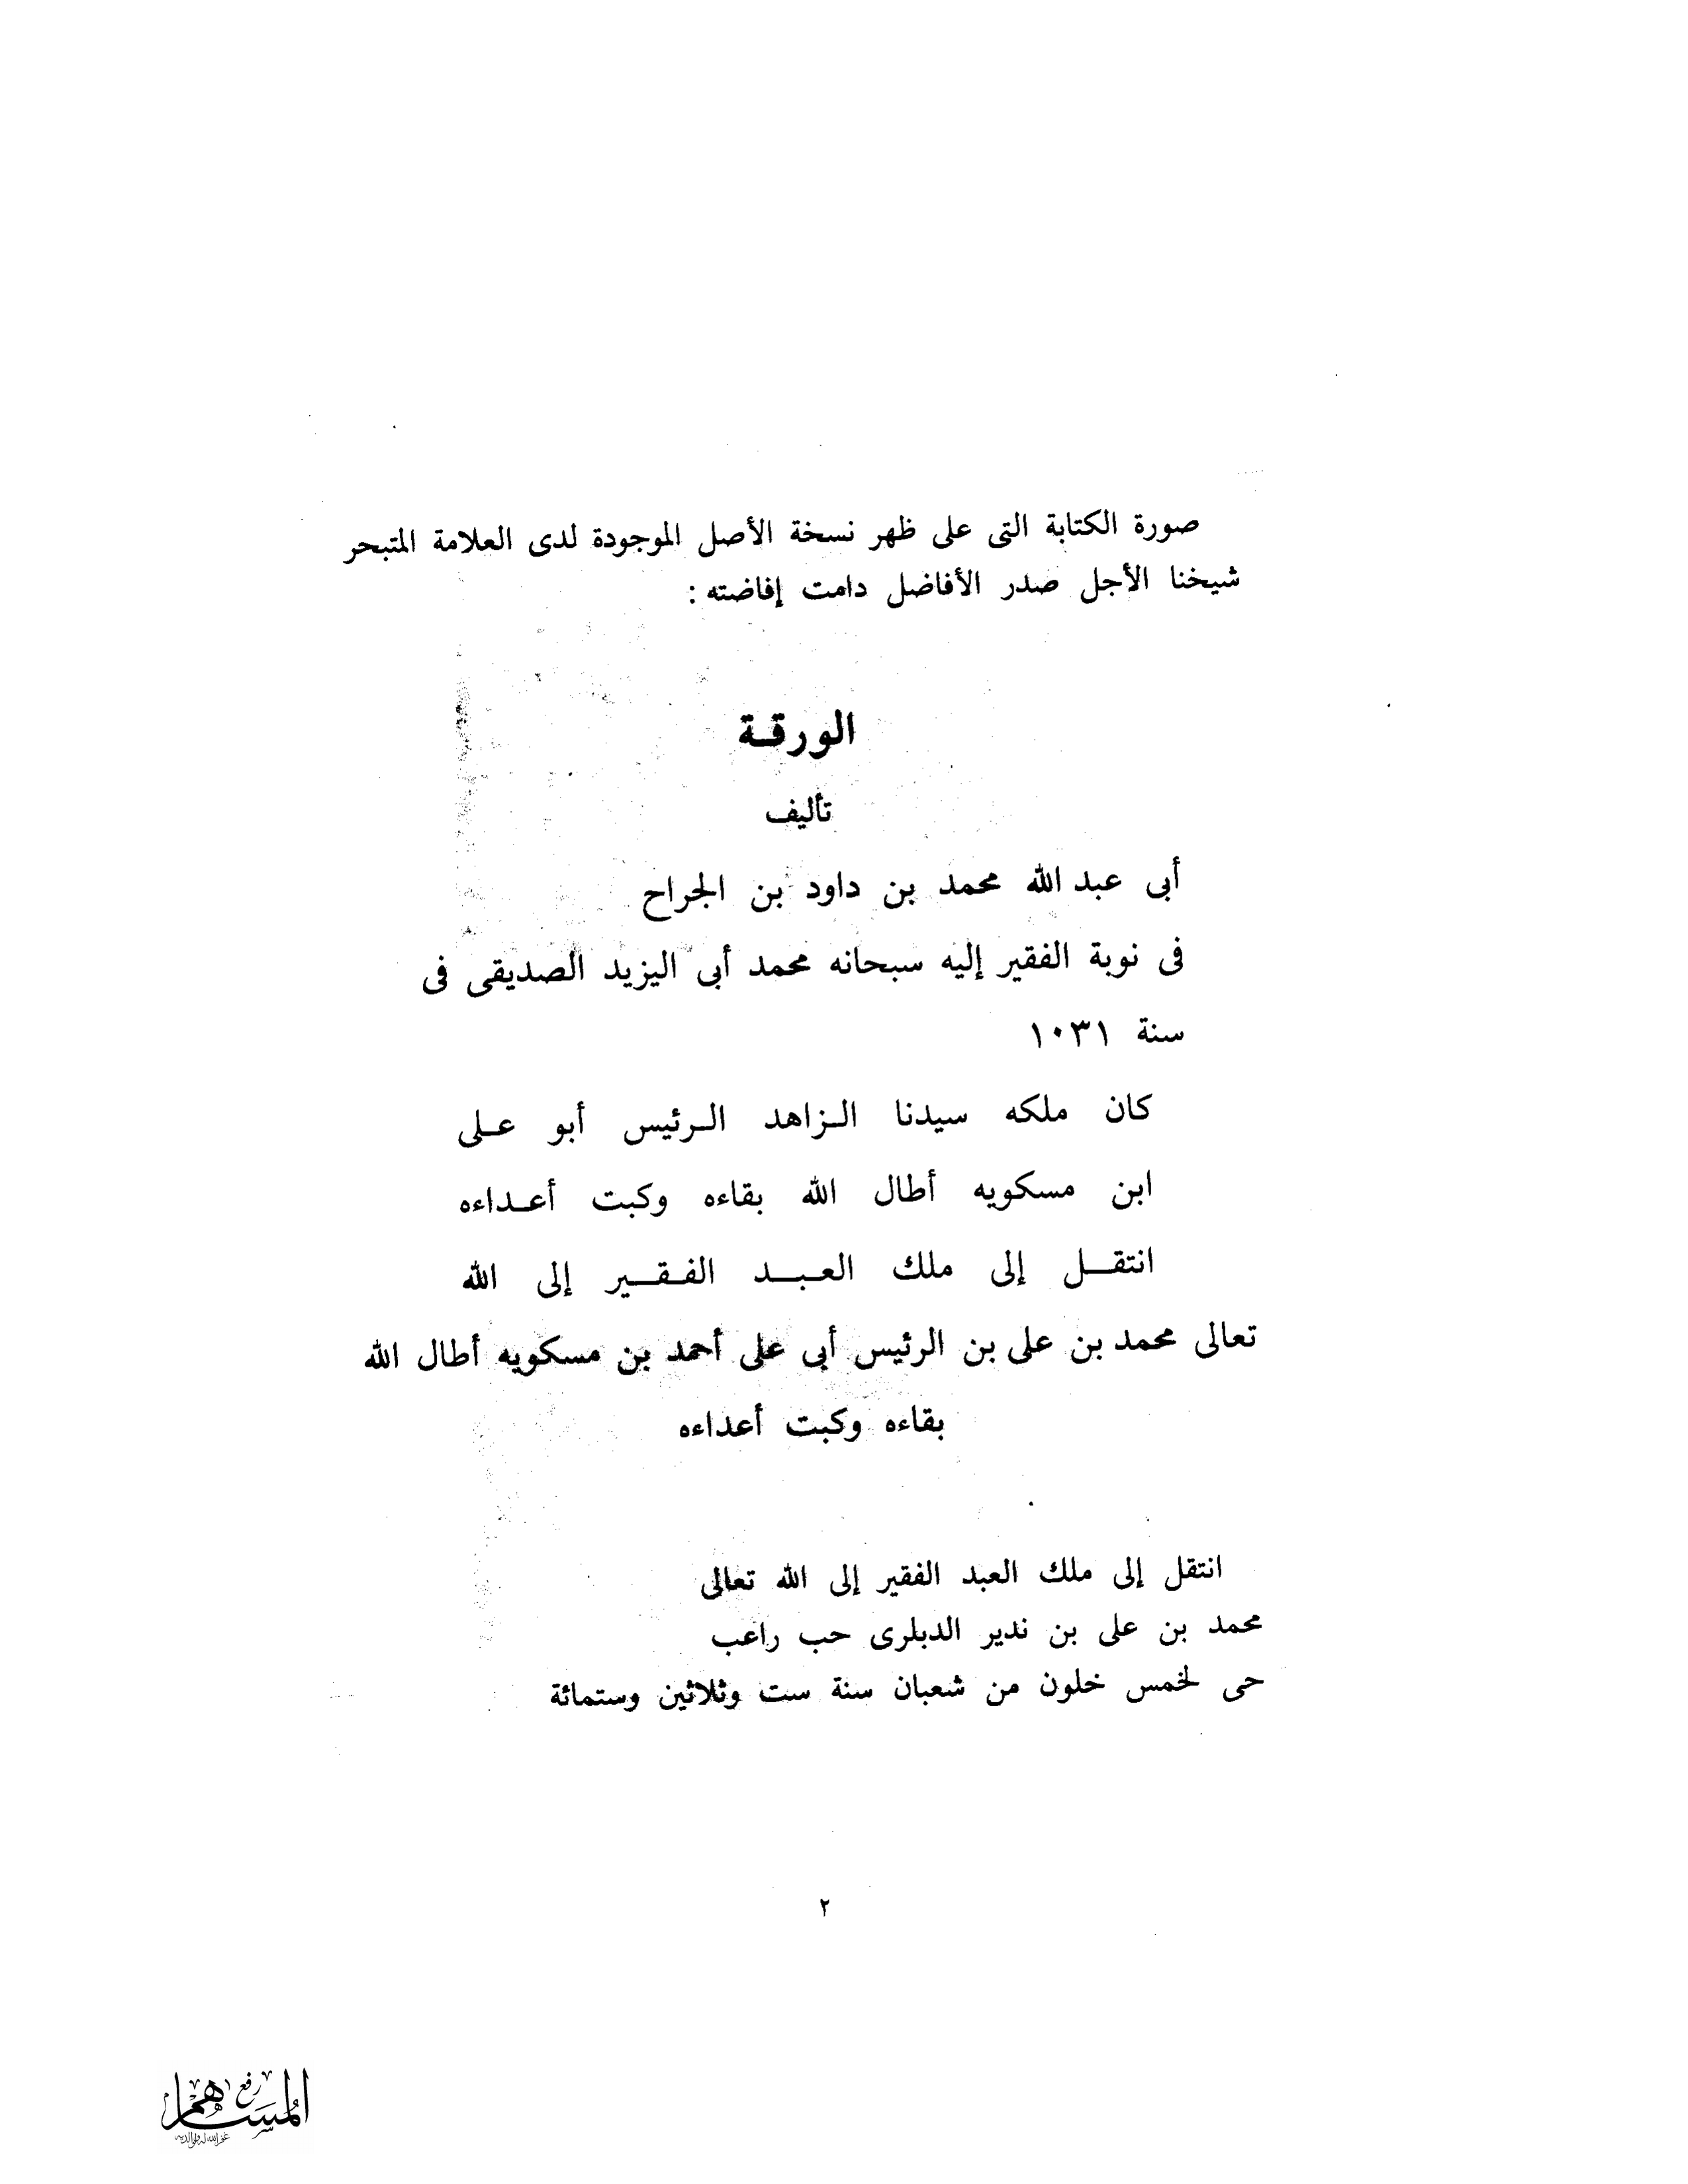 صورة الكتابة التى على ظهر نسخة الأصل الموجودة لدى العلامة المتبحر
شيخنا الأجل صدر الأفاضل دامت إفاضته :
الورقة
تأليف
أبى عبد الله محمد بن داود بن الجراح
فى نوبة الفقير إليه سبحانه محمد أبى اليزيد الصديقى فى
سنة ١٠٣١
كان ملكه سيدنا الزاهد الرئيس أبو على
ابن مسكويه أطال الله بقاءه وكبت أعداءه
انتقل إلى ملك العبد الفقير إلى الله
تعالى محمد بن على بن الرئيس أبى على أحمد بن مسكويه أطال الله
بقاءه وكبت أعداءه
انتقل إلى ملك العبد الفقير إلى الله تعالى
محمد بن على بن ندير الدبلرى حب راعب
حى لخمس خلون من شعبان سنة ست وثلاثين وستمائة
٢
رفع
المساهم
غفر الله له ولوالديه